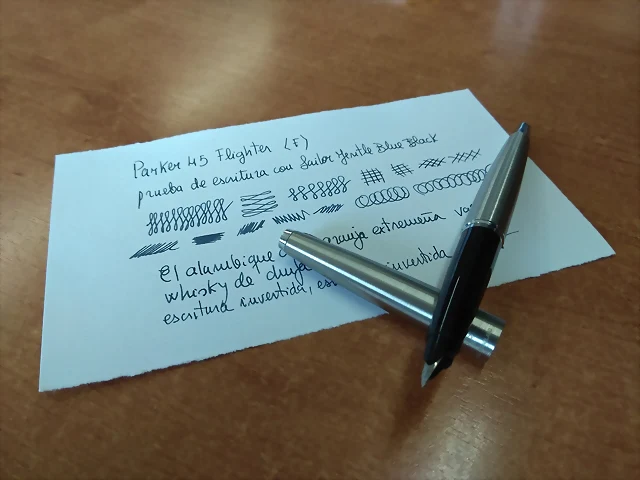 Parker 45 Flighter (F)
prueba de escritura con Sailor Jentle Blue Black
El alambique extremeña
whisky de invertida
escritura invertida,